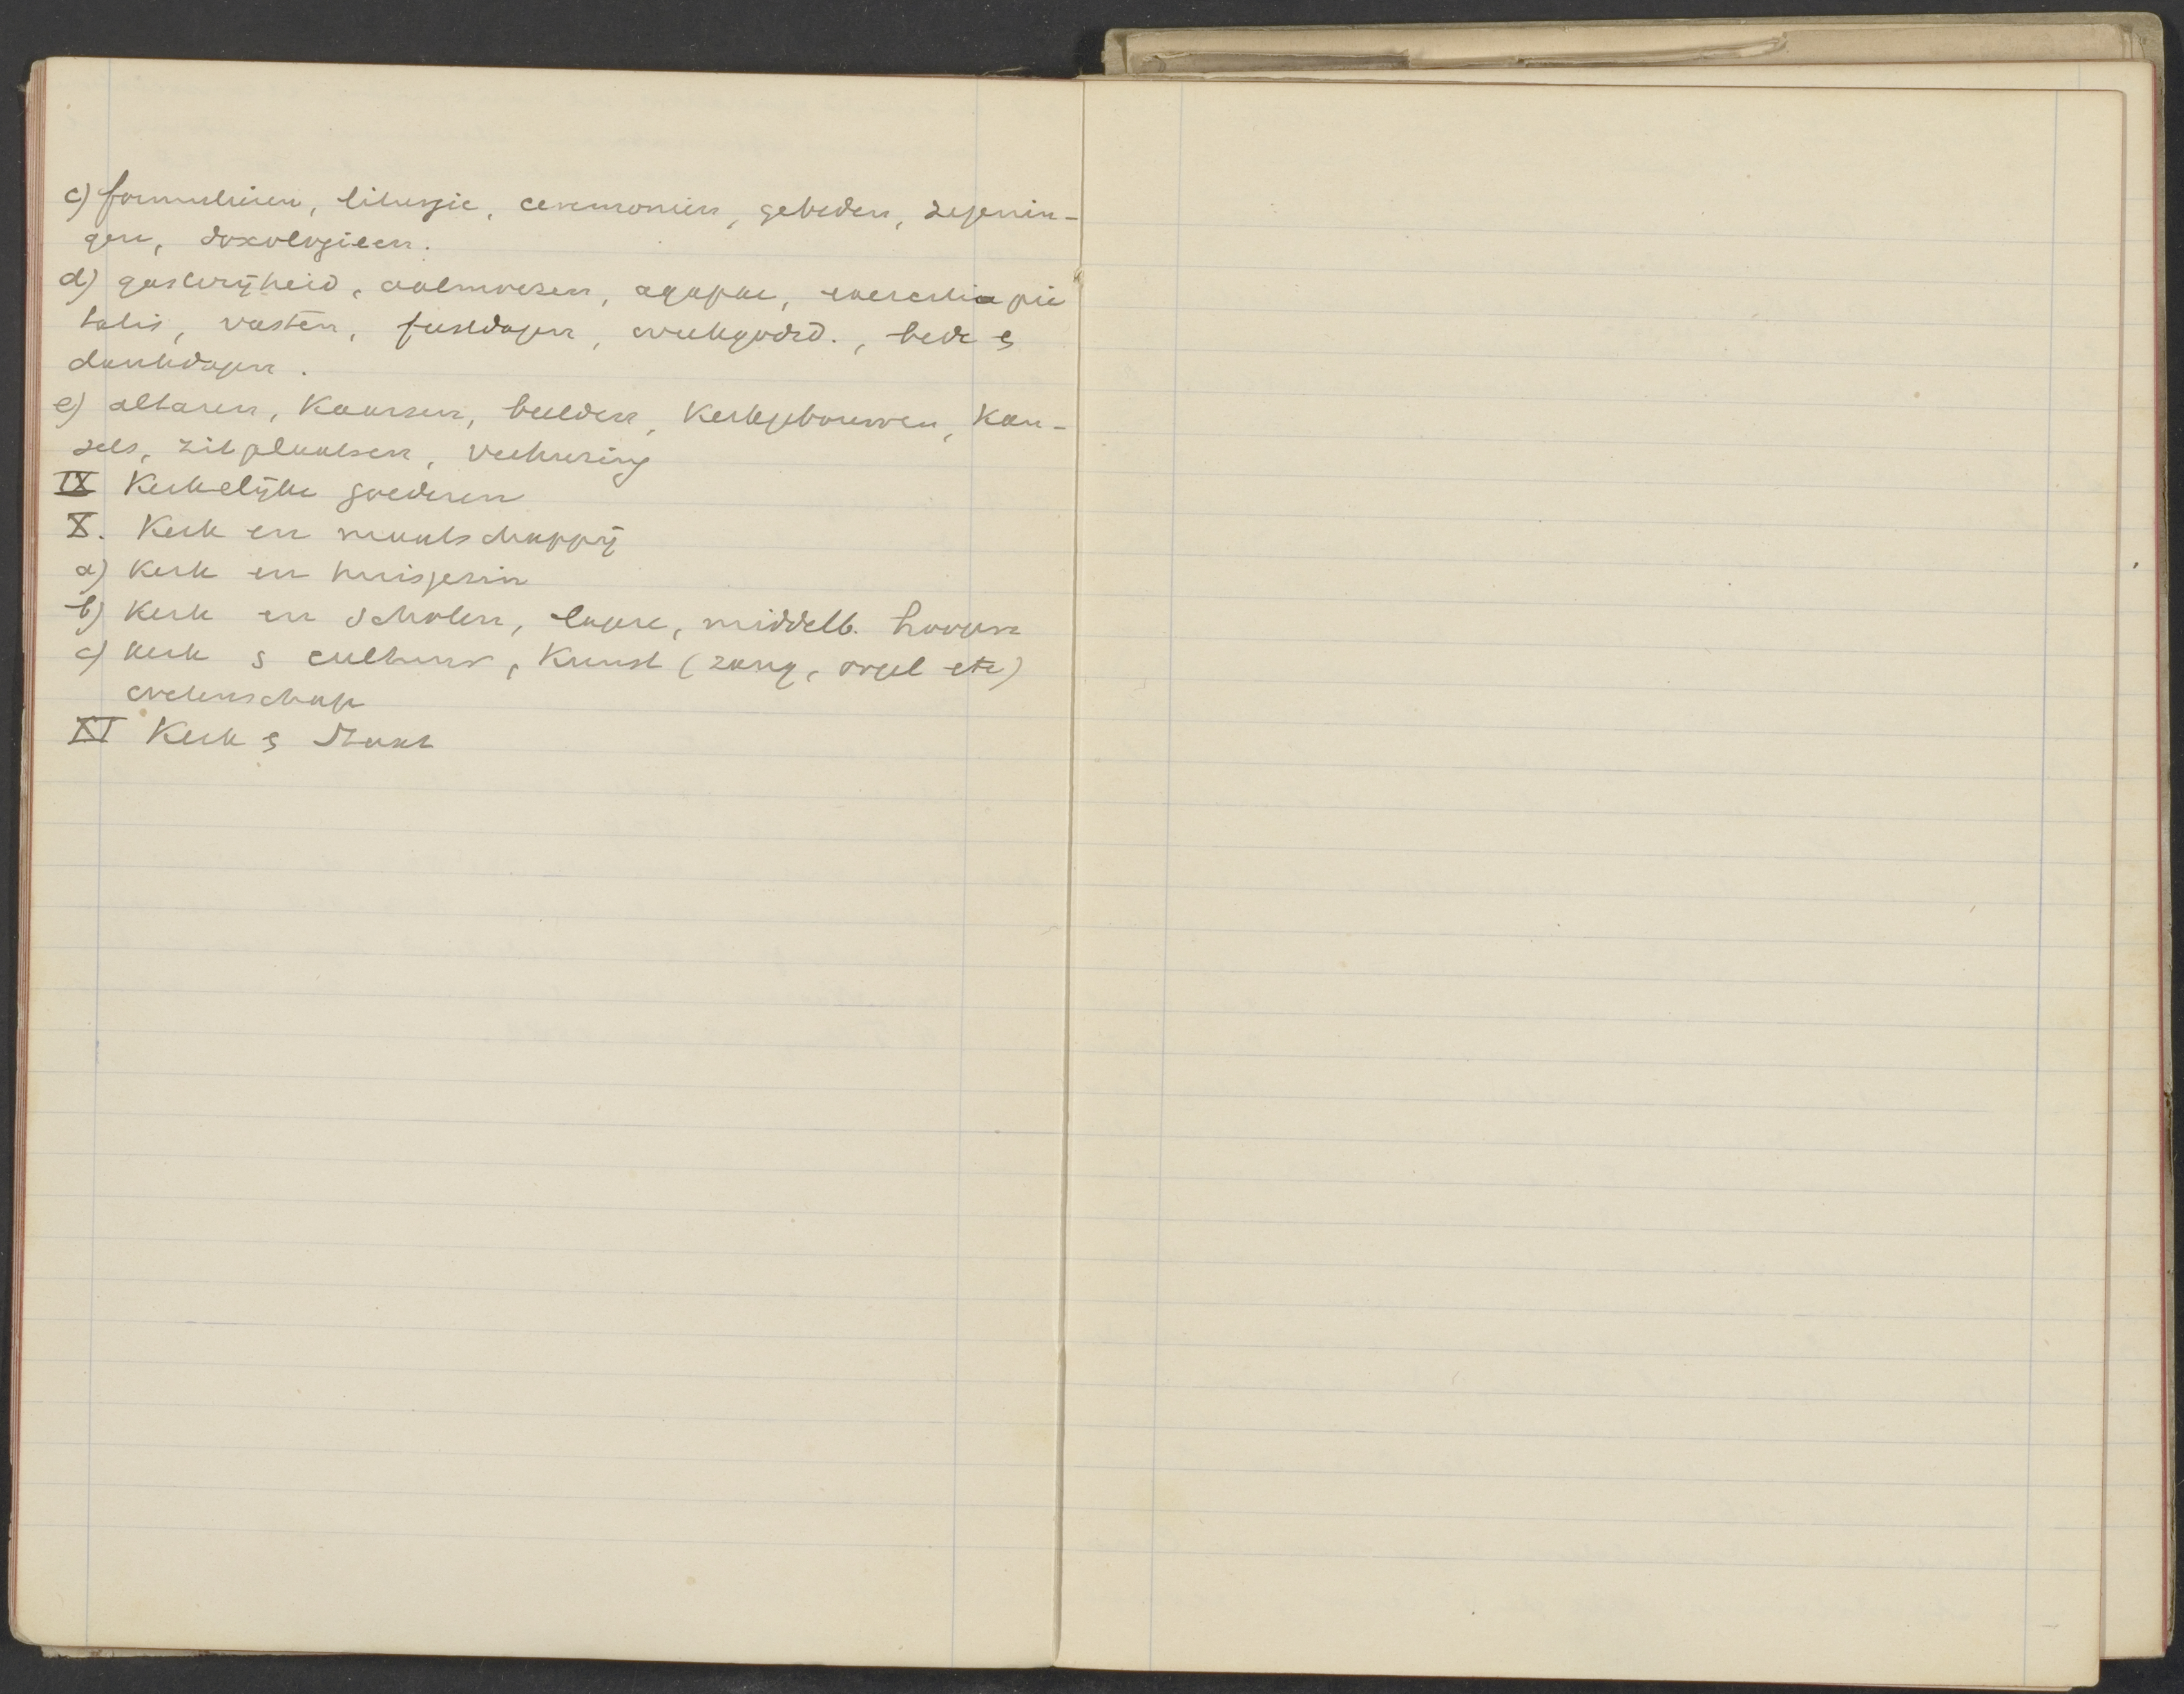 c) formulieren, liturgie, ceremoniën, gebeden, zegenin-
gen, doxologieen.
d) gastvrijheid, aalmoezen, agapae, exercitia pie
tatis, vasten, feestdagen, weekgodsd., bede &
dankdagen.
e) altaren, Kaarsen, beelden, Kerkgebouwen, Kan-
sels, zitplaatsen, verhuring
IX Kerkelijke goederen
X. Kerk en maatschappij
a) Kerk en huisgezin
b) Kerk en scholen, lagere, middelb. hoogere
c) Kerk & cultuur, Kunst (zang, orgel etc)
wetenschap
XI Kerk & Staat